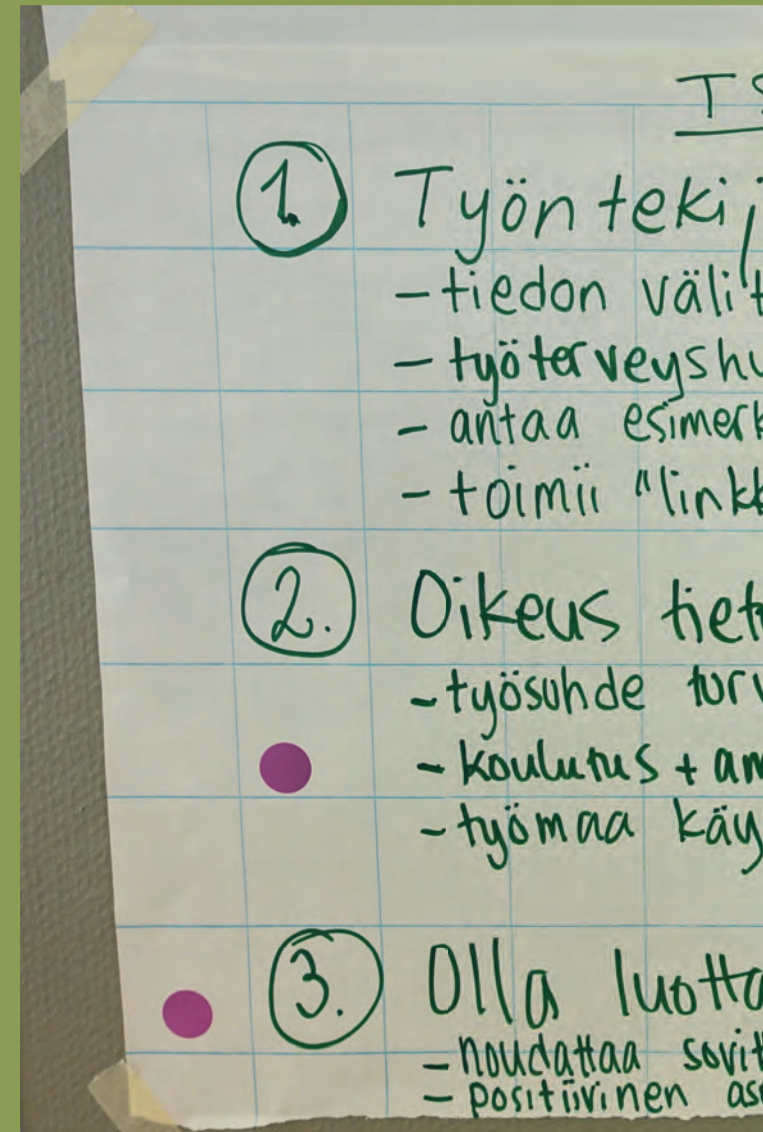 TS
1. Työntekij
- tiedon välit
- työterveyshu
- antaa esimerk
- toimii "linkk
2. Oikeus tiet
- työsuhde turv
- koulutus + am
- työmaa käy
3. Olla luotta
- noudattaa sovit
- positiivinen as